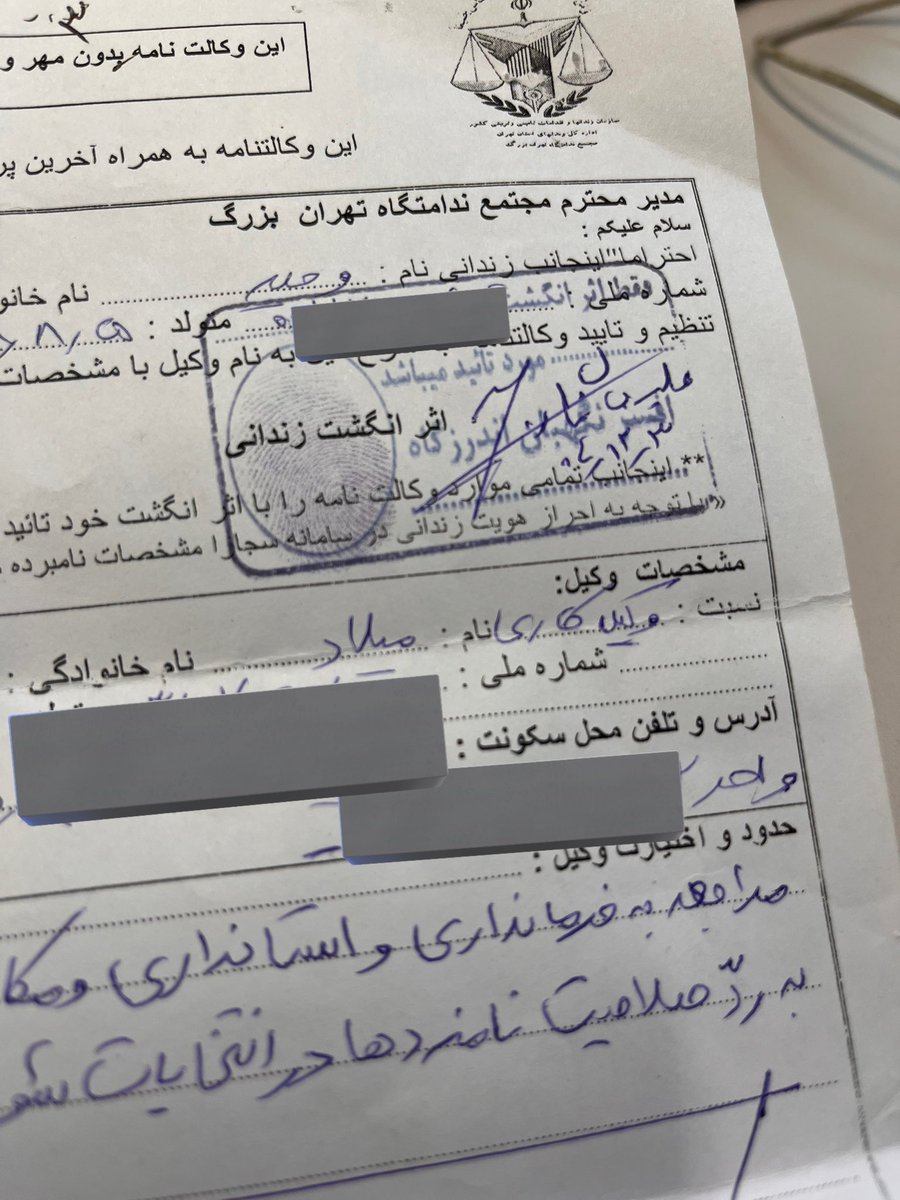 این وکالت نامه بدون مهر و
سازمان زندانها و اقدامات تامینی و تربیتی کشور
اداره کل زندانهای استان تهران
مجتمع ندامتگاه تهران بزرگ
این وکالتنامه به همراه آخرین
مدیر محترم مجتمع ندامتگاه تهران بزرگ
سلام علیکم :
احتراما"اینجانب زندانی نام : وحید نام
شماره ملی : متولد :
فقط اثر انگشت
تنظیم و تایید به نام وکیل با مشخصات
مورد تائید میباشد
اثر انگشت زندانی
افسر نگهبانی اندرزگاه
** اینجانب تمامی موارد وکالت نامه را با اثر انگشت خود تائید
«با توجه به احراز هویت زندانی در سامانه سجا،از مشخصات نامبرده
مشخصات وکیل:
نسبت : وکیل کاری نام : میلاد نام خانوادگی :
شماره ملی :
آدرس و تلفن محل سکونت :
واحد
حدود و اختیارات وکیل :
مراجعه به فرمانداری و استانداری
به ردّ صلاحیت نامزدها در انتخابات